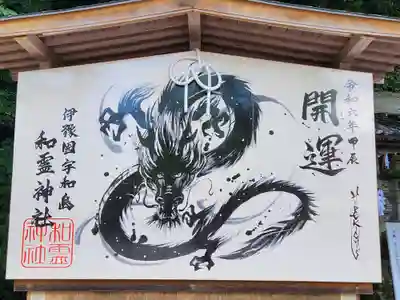 令和六年 甲辰
開運
伊豫国宇和島
和霊神社
和霊
神社